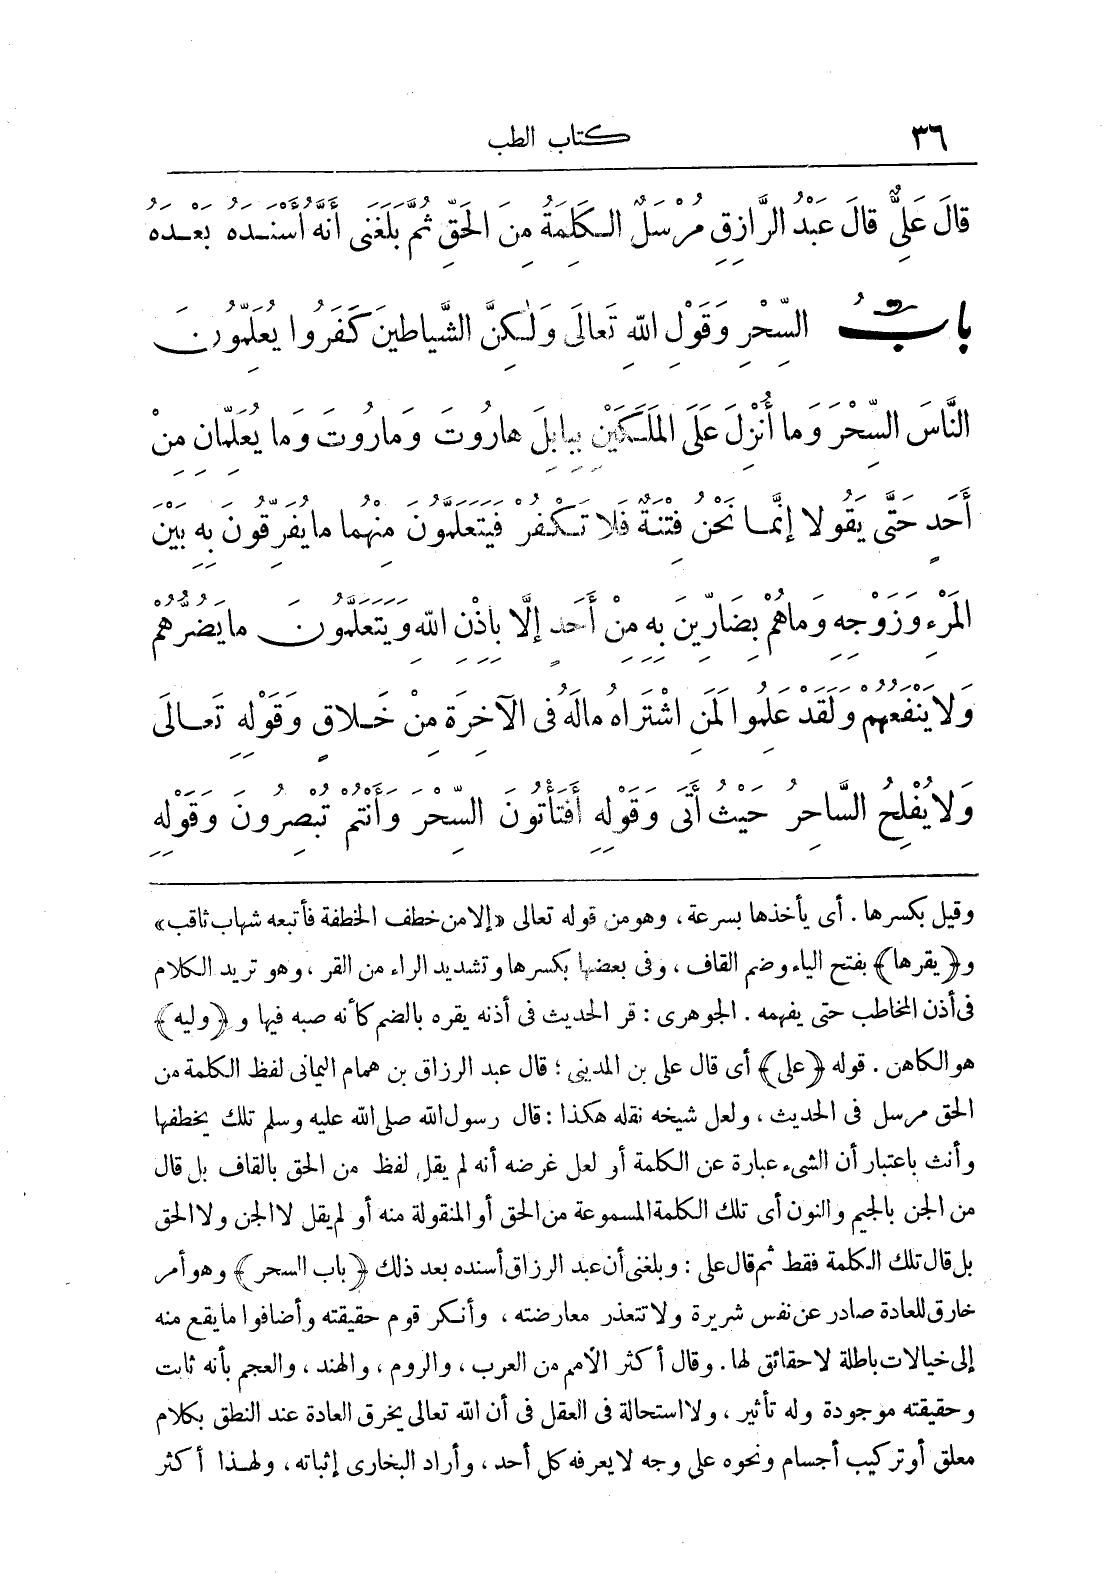 ٣٦ كتاب الطب
قَالَ عَلِيٌّ قَالَ عَبْدُ الرَّازِقِ مُرْسَلٌ الْكَلِمَةُ مِنَ الْحَقِّ ثُمَّ بَلَغَنِى أَنَّهُ أَسْنَدَهُ بَعْدَهُ
بابُ السِّحْرِ وَقَوْلِ اللهِ تَعَالَى وَلَكِنَّ الشَّيَاطِينَ كَفَرُوا يُعَلِّمُونَ
النَّاسَ السِّحْرَ وَمَا أُنْزِلَ عَلَى الْمَلَكَيْنِ بِبَابِلَ هَارُوتَ وَمَارُوتَ وَمَا يُعَلِّمَانِ مِنْ
أَحَدٍ حَتَّى يَقُولَا إِنَّمَا نَحْنُ فِتْنَةٌ فَلَا تَكْفُرْ فَيَتَعَلَّمُونَ مِنْهُمَا مَا يُفَرِّقُونَ بِهِ بَيْنَ
الْمَرْءِ وَزَوْجِهِ وَمَا هُمْ بِضَارِّينَ بِهِ مِنْ أَحَدٍ إِلَّا بِإِذْنِ اللهِ وَيَتَعَلَّمُونَ مَا يَضُرُّهُمْ
وَلَا يَنْفَعُهُمْ وَلَقَدْ عَلِمُوا لَمَنِ اشْتَرَاهُ مَا لَهُ فِى الْآخِرَةِ مِنْ خَلَاقٍ وَقَوْلِهِ تَعَالَى
وَلَا يُفْلِحُ السَّاحِرُ حَيْثُ أَتَى وَقَوْلِهِ أَفَتَأْتُونَ السِّحْرَ وَأَنْتُمْ تُبْصِرُونَ وَقَوْلِهِ
وقيل بكسرها . أى يأخذها بسرعة ، وهو من قوله تعالى «إلا من خطف الخطفة فأتبعه شهاب ثاقب»
و ﴿يقرها﴾ بفتح الياء وضم القاف ، وفى بعضها بكسرها وتشديد الراء من القر ، وهو ترديد الكلام
فى أذن المخاطب حتى يفهمه . الجوهرى : قر الحديث فى أذنه يقره بالضم كأنه صبه فيها و ﴿وليه﴾
هو الكاهن . قوله ﴿على﴾ أى قال على بن المدينى ؛ قال عبد الرزاق بن همام اليمانى لفظ الكلمة من
الحق مرسل فى الحديث ، ولعل شيخه نقله هكذا : قال رسول الله صلى الله عليه وسلم تلك يخطفها
وأنث باعتبار أن الشىء عبارة عن الكلمة أو لعل غرضه أنه لم يقل لفظ من الحق بالقاف بل قال
من الجن بالجيم والنون أى تلك الكلمة المسموعة من الحق أو المنقولة منه أو لم يقل لا الجن ولا الحق
بل قال تلك الكلمة فقط ثم قال على : وبلغنى أن عبد الرزاق أسنده بعد ذلك ﴿باب السحر﴾ وهو أمر
خارق للعادة صادر عن نفس شريرة ولا تتعذر معارضته ، وأنكر قوم حقيقته وأضافوا ما يقع منه
إلى خيالات باطلة لا حقائق لها . وقال أكثر الأمم من العرب ، والروم ، والهند ، والعجم بأنه ثابت
وحقيقته موجودة وله تأثير ، ولا استحالة فى العقل فى أن الله تعالى يخرق العادة عند النطق بكلام
معلق أو تركيب أجسام ونحوه على وجه لا يعرفه كل أحد ، وأراد البخارى إثباته ، ولهذا أكثر